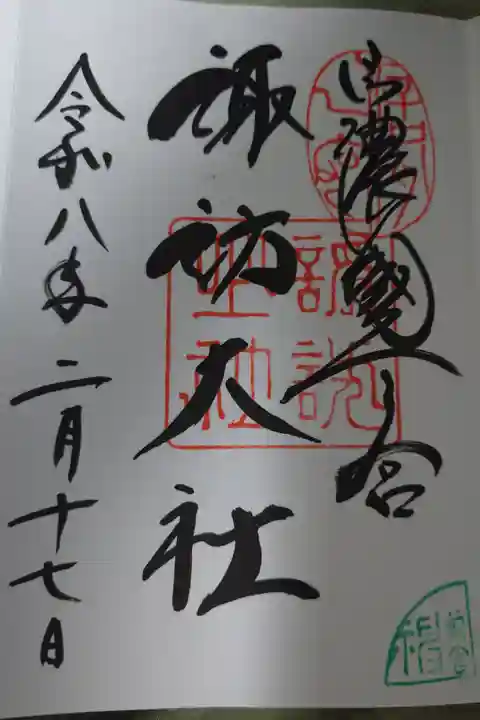 信濃國一之宮
諏訪大社
令和八年二月十七日